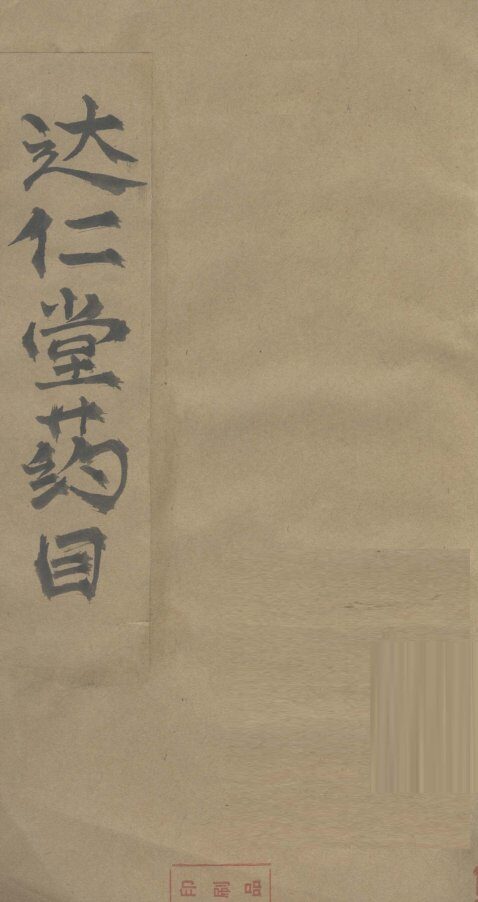 达仁堂药目